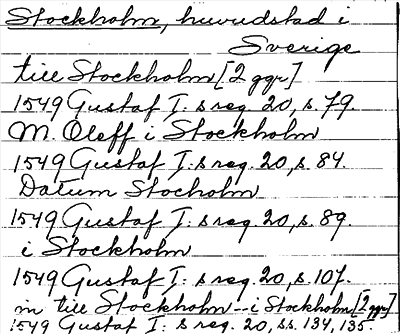 Stockholm, huvudstad i
Sverige
till Stockholm [2 ggr]
1549 Gustaf I: s reg. 20, s. 79.
M. Oloff i Stockholm
1549 Gustaf I: s reg. 20, s. 84.
Datum Stocholm
1549 Gustaf I: s reg. 20, s. 89.
i Stockholm
1549 Gustaf I: s reg. 20, s. 107.
m till Stockholm - i Stockholm [2 ggr]
1549 Gustaf I: s reg. 20, ss. 134, 135.